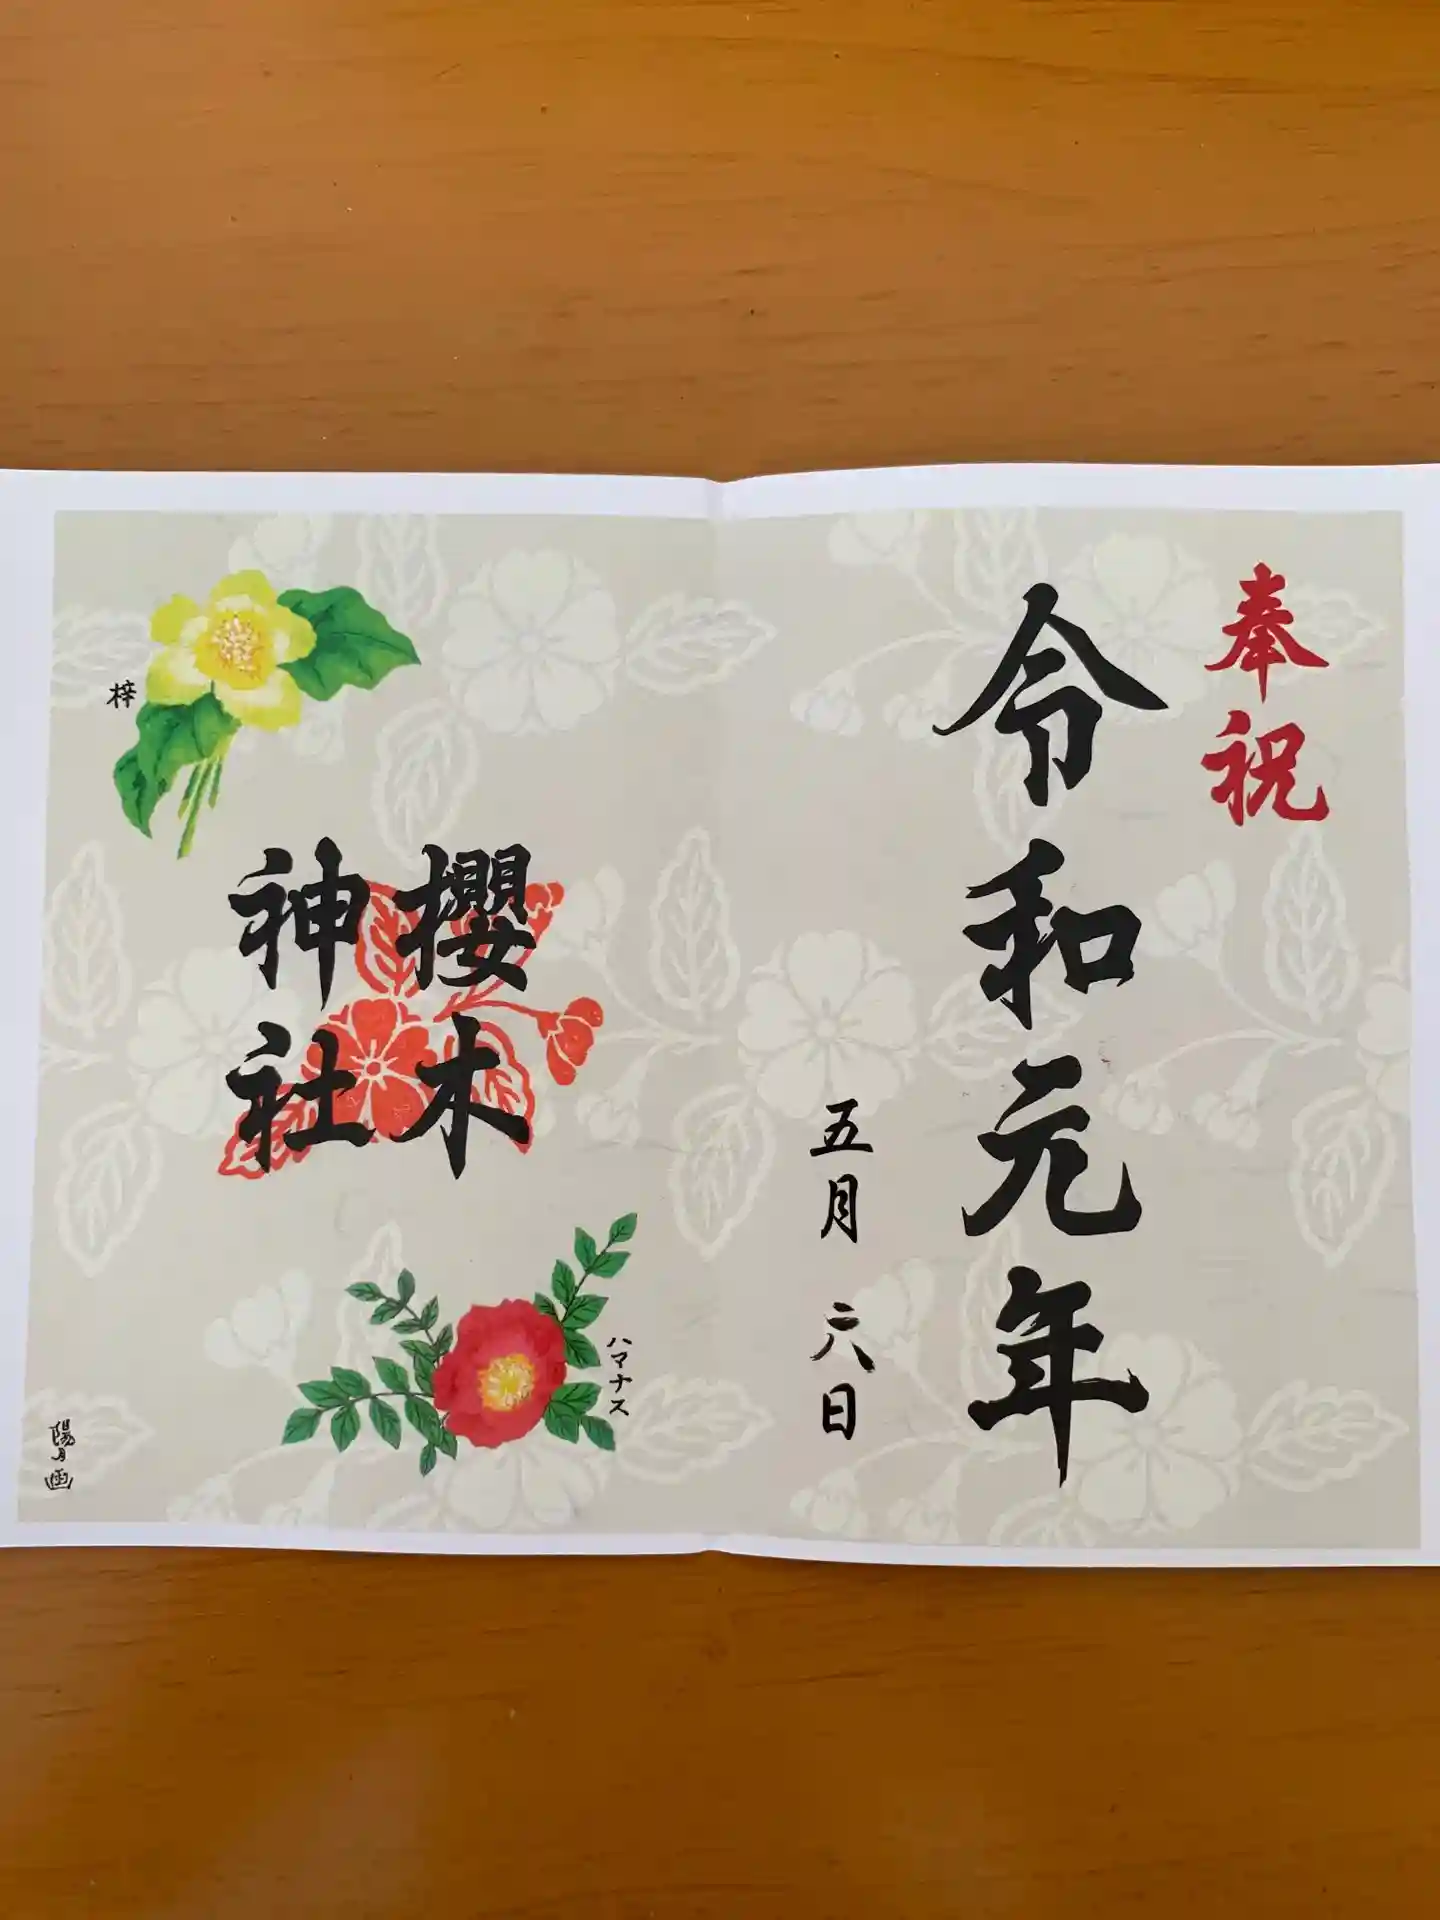 奉祝
令和元年
五月六日
櫻木
神社
梓
ハマナス
陽月画